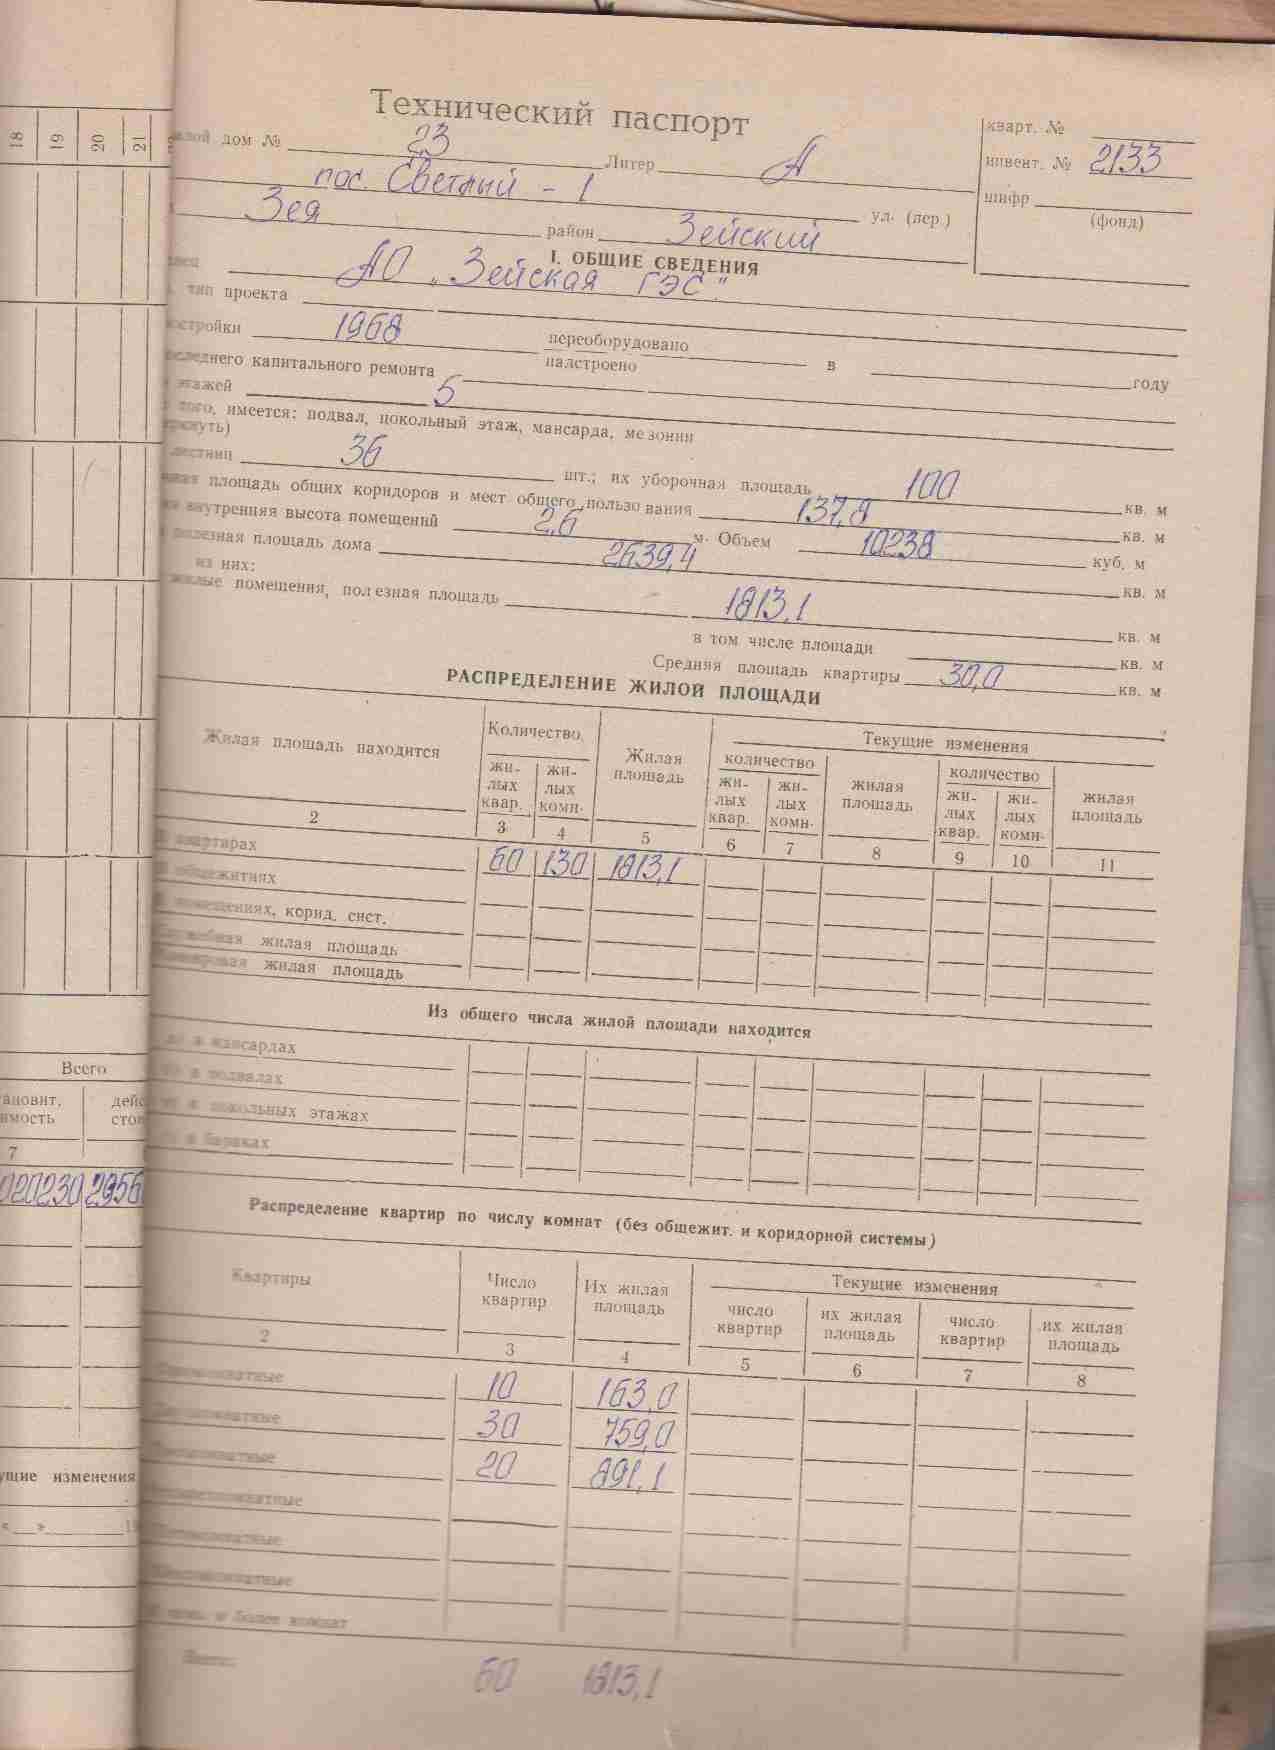 18 19 20 21
Технический паспорт
жилой дом № 23 Литер А
кварт. №
инвент. № 2133
шифр
(фонд)
пос. Светлый - 1 ул. (пер.)
Зея район Зейский
I. ОБЩИЕ СВЕДЕНИЯ
АО „Зейская ГЭС"
тип проекта
постройки 1968 переоборудовано
надстроено в году
последнего капитального ремонта
этажей 5
того, имеется: подвал, цокольный этаж, мансарда, мезонин
лестниц 36 шт.; их уборочная площадь 100 кв. м
площадь общих коридоров и мест общего пользования 137,8 кв. м
внутренняя высота помещений 2,6 м. Объем 10238 куб. м
полезная площадь дома 2639,4 кв. м
из них:
жилые помещения, полезная площадь 1813,1 кв. м
в том числе площади кв. м
Средняя площадь квартиры 30,0 кв. м
РАСПРЕДЕЛЕНИЕ ЖИЛОЙ ПЛОЩАДИ
Жилая площадь находится
Количество
Жилая площадь
Текущие изменения
жи-лых квар.
жи-лых комн.
количество
жи-лых квар.
жи-лых комн.
жилая площадь
количество
жи-лых квар.
жи-лых комн.
жилая площадь
2 3 4 5 6 7 8 9 10 11
В квартирах 60 130 1813,1
В общежитиях
В помещениях, корид. сист.
Служебная жилая площадь
жилая площадь
Из общего числа жилой площади находится
в мансардах
в подвалах
в цокольных этажах
в бараках
Всего
7
020230 2956
Распределение квартир по числу комнат (без общежит. и коридорной системы)
Квартиры
Число квартир
Их жилая площадь
Текущие изменения
число квартир
их жилая площадь
число квартир
их жилая площадь
2 3 4 5 6 7 8
Однокомнатные 10 163,0
Двухкомнатные 30 759,0
Трехкомнатные 20 891,1
Четырехкомнатные
Пятикомнатные
Шестикомнатные
и более комнат
Всего: 60 1813,1
изменения
«__»________19